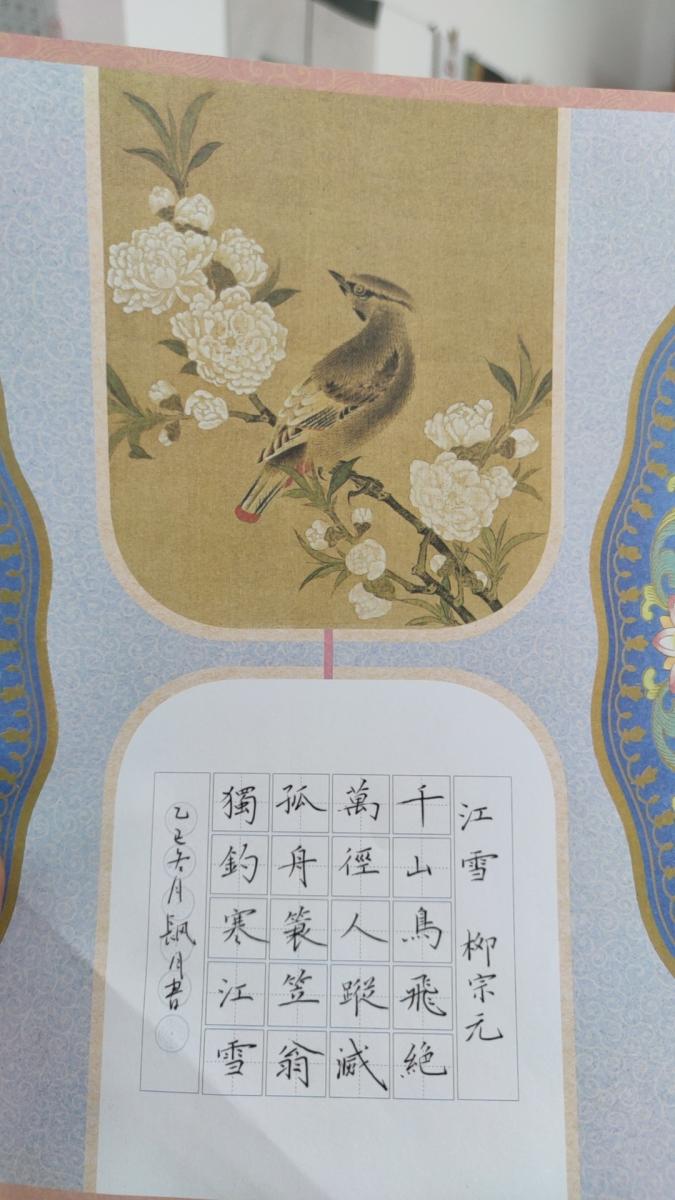 江雪 柳宗元
千山鳥飛絕
萬徑人蹤滅
孤舟簑笠翁
獨釣寒江雪
乙巳冬月 月書